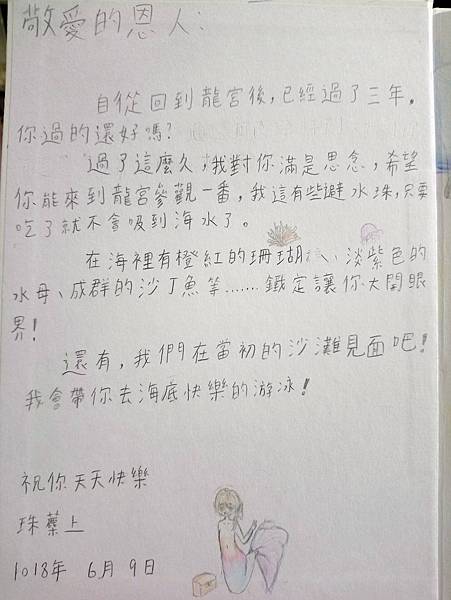 敬愛的恩人:
自從回到龍宮後,已經過了三年。
你過的還好嗎?
過了這麼久,我對你滿是思念,希望
你能來到龍宮參觀一番,我這有些避水珠,只要
吃了就不會吸到海水了。
在海裡有橙紅的珊瑚、淡紫色的
水母、成群的沙丁魚等……鐵定讓你大開眼
界!
還有,我們在當初的沙灘見面吧!
我會帶你去海底快樂的游泳!
祝你天天快樂
珠蘂上
1018年 6月 9日